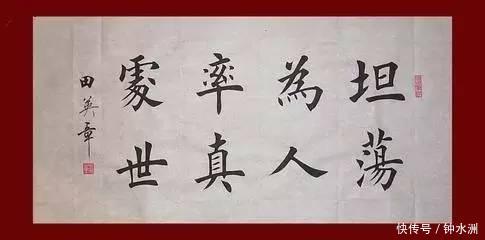 坦蕩
為人
率真
處世
田英章
快传号/钟水洲